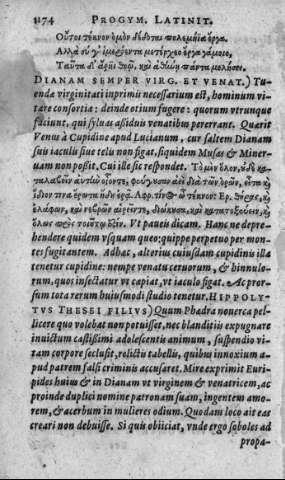 1174 PROGYM. LATINIT.
Οὔτοι τέκνον ἐμὸν δέδοται πολεμήϊα ἔργα.
Ἀλλὰ σύ γ' ἱμερόεντα μετέρχεο ἔργα γάμοιο,
Ταῦτα δ' ἄρηϊ θοῷ καὶ ἀθήνῃ πάντα μελήσει.
DIANAM SEMPER VIRG. ET VENAT.) Tu-
endæ virginitati inprimis necessarium est, hominum vi-
tare consortia: deinde otium fugere: quorum vtrunque
faciunt, qui syluas assiduis venatibus pererrant. Quærit
Venus à Cupidine apud Lucianum, cur saltem Dianam
suis iaculis siue telis non figat, siquidem Musas & Miner-
uam non possit. Cui ille sic respondet. Τὸ μὲν ὅλον, οὐδὲ κα-
ταλαβεῖν αὐτὴν οἷόντε, φεύγουσαν ἀεὶ διὰ τῶν ὀρῶν, εἶτα κὶ
ἴδιόν τινα ἔρωτα ἤδη ἐρᾷ. Ἀφ. τίνος ὦ τέκνον; Ερ. Θήρας, κὶ
ἐλάφων, καὶ νεβρῶν αἱρεῖν τε, διώκουσα, καὶ κατατοξεύειν, κὶ
ὅλως πρὸς τούτῳ ἐστίν. Vt paucis dicam. Hanc ne depre-
hendere quidem vsquam queo: quippe perpetuo per mon-
tes fugitantem. Adhæc, alterius cuiusdam cupidinis illa
tenetur cupidine: nempe venatu ceruorum, & hinnulo-
rum, quos insectatur vt capiat, vt iaculo figat. Ac pror-
sum tota rerum huiusmodi studio tenetur. HIPPOLY-
TVS THESEI FILIVS) Quum Phædra nouerca pel-
licere quo volebat non potuisset, nec blanditiis expugnare
inuictum castissimi adolescentis animum, suspendio vi-
tam corpore seclusit, relictis tabellis, quibus innoxium a-
pud patrem falsi criminis accusaret. Mire exprimit Euri-
pides huius & in Dianam vt virginem & venatricem, ac
proinde duplici nomine patronam suam, ingentem amo-
rem, & acerbum in mulieres odium. Quodam loco ait eas
creari non debuisse. Si quis obiiciat, vnde ergo soboles ad
propa-